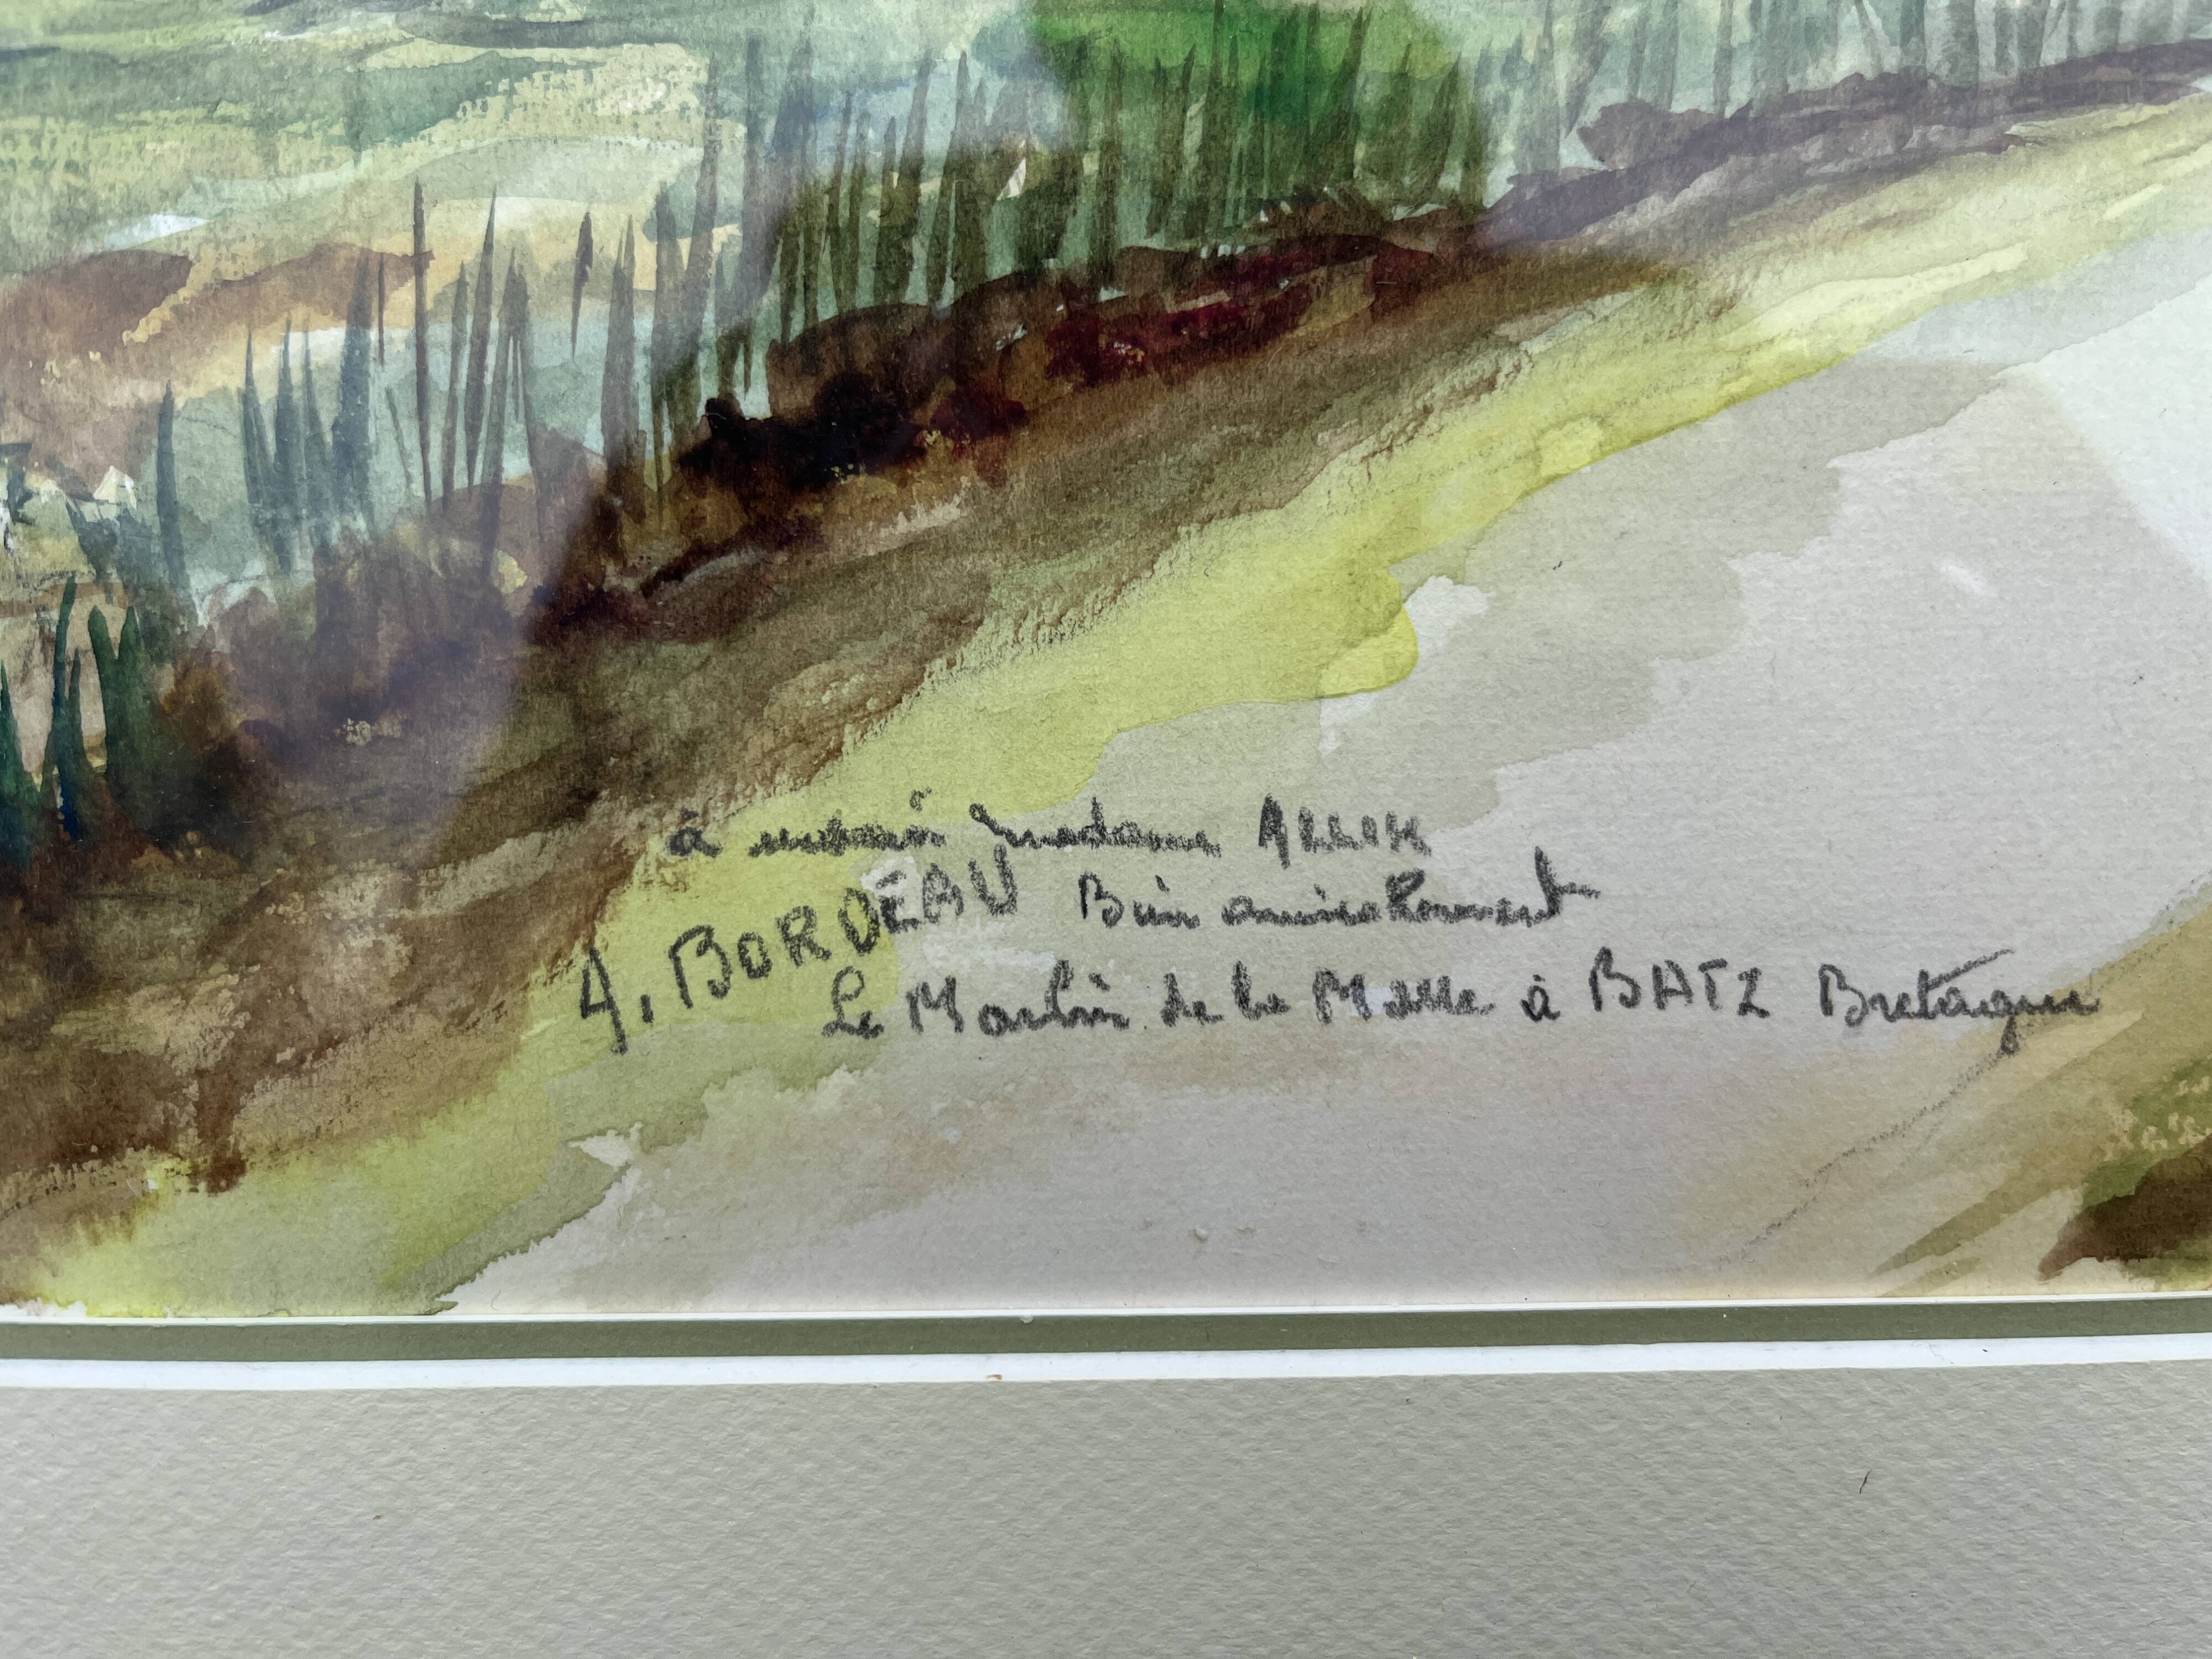 à madame ALLIX
A. BORDEAU Bien amicalement
Le Moulin de la Masse à BATZ Bretagne